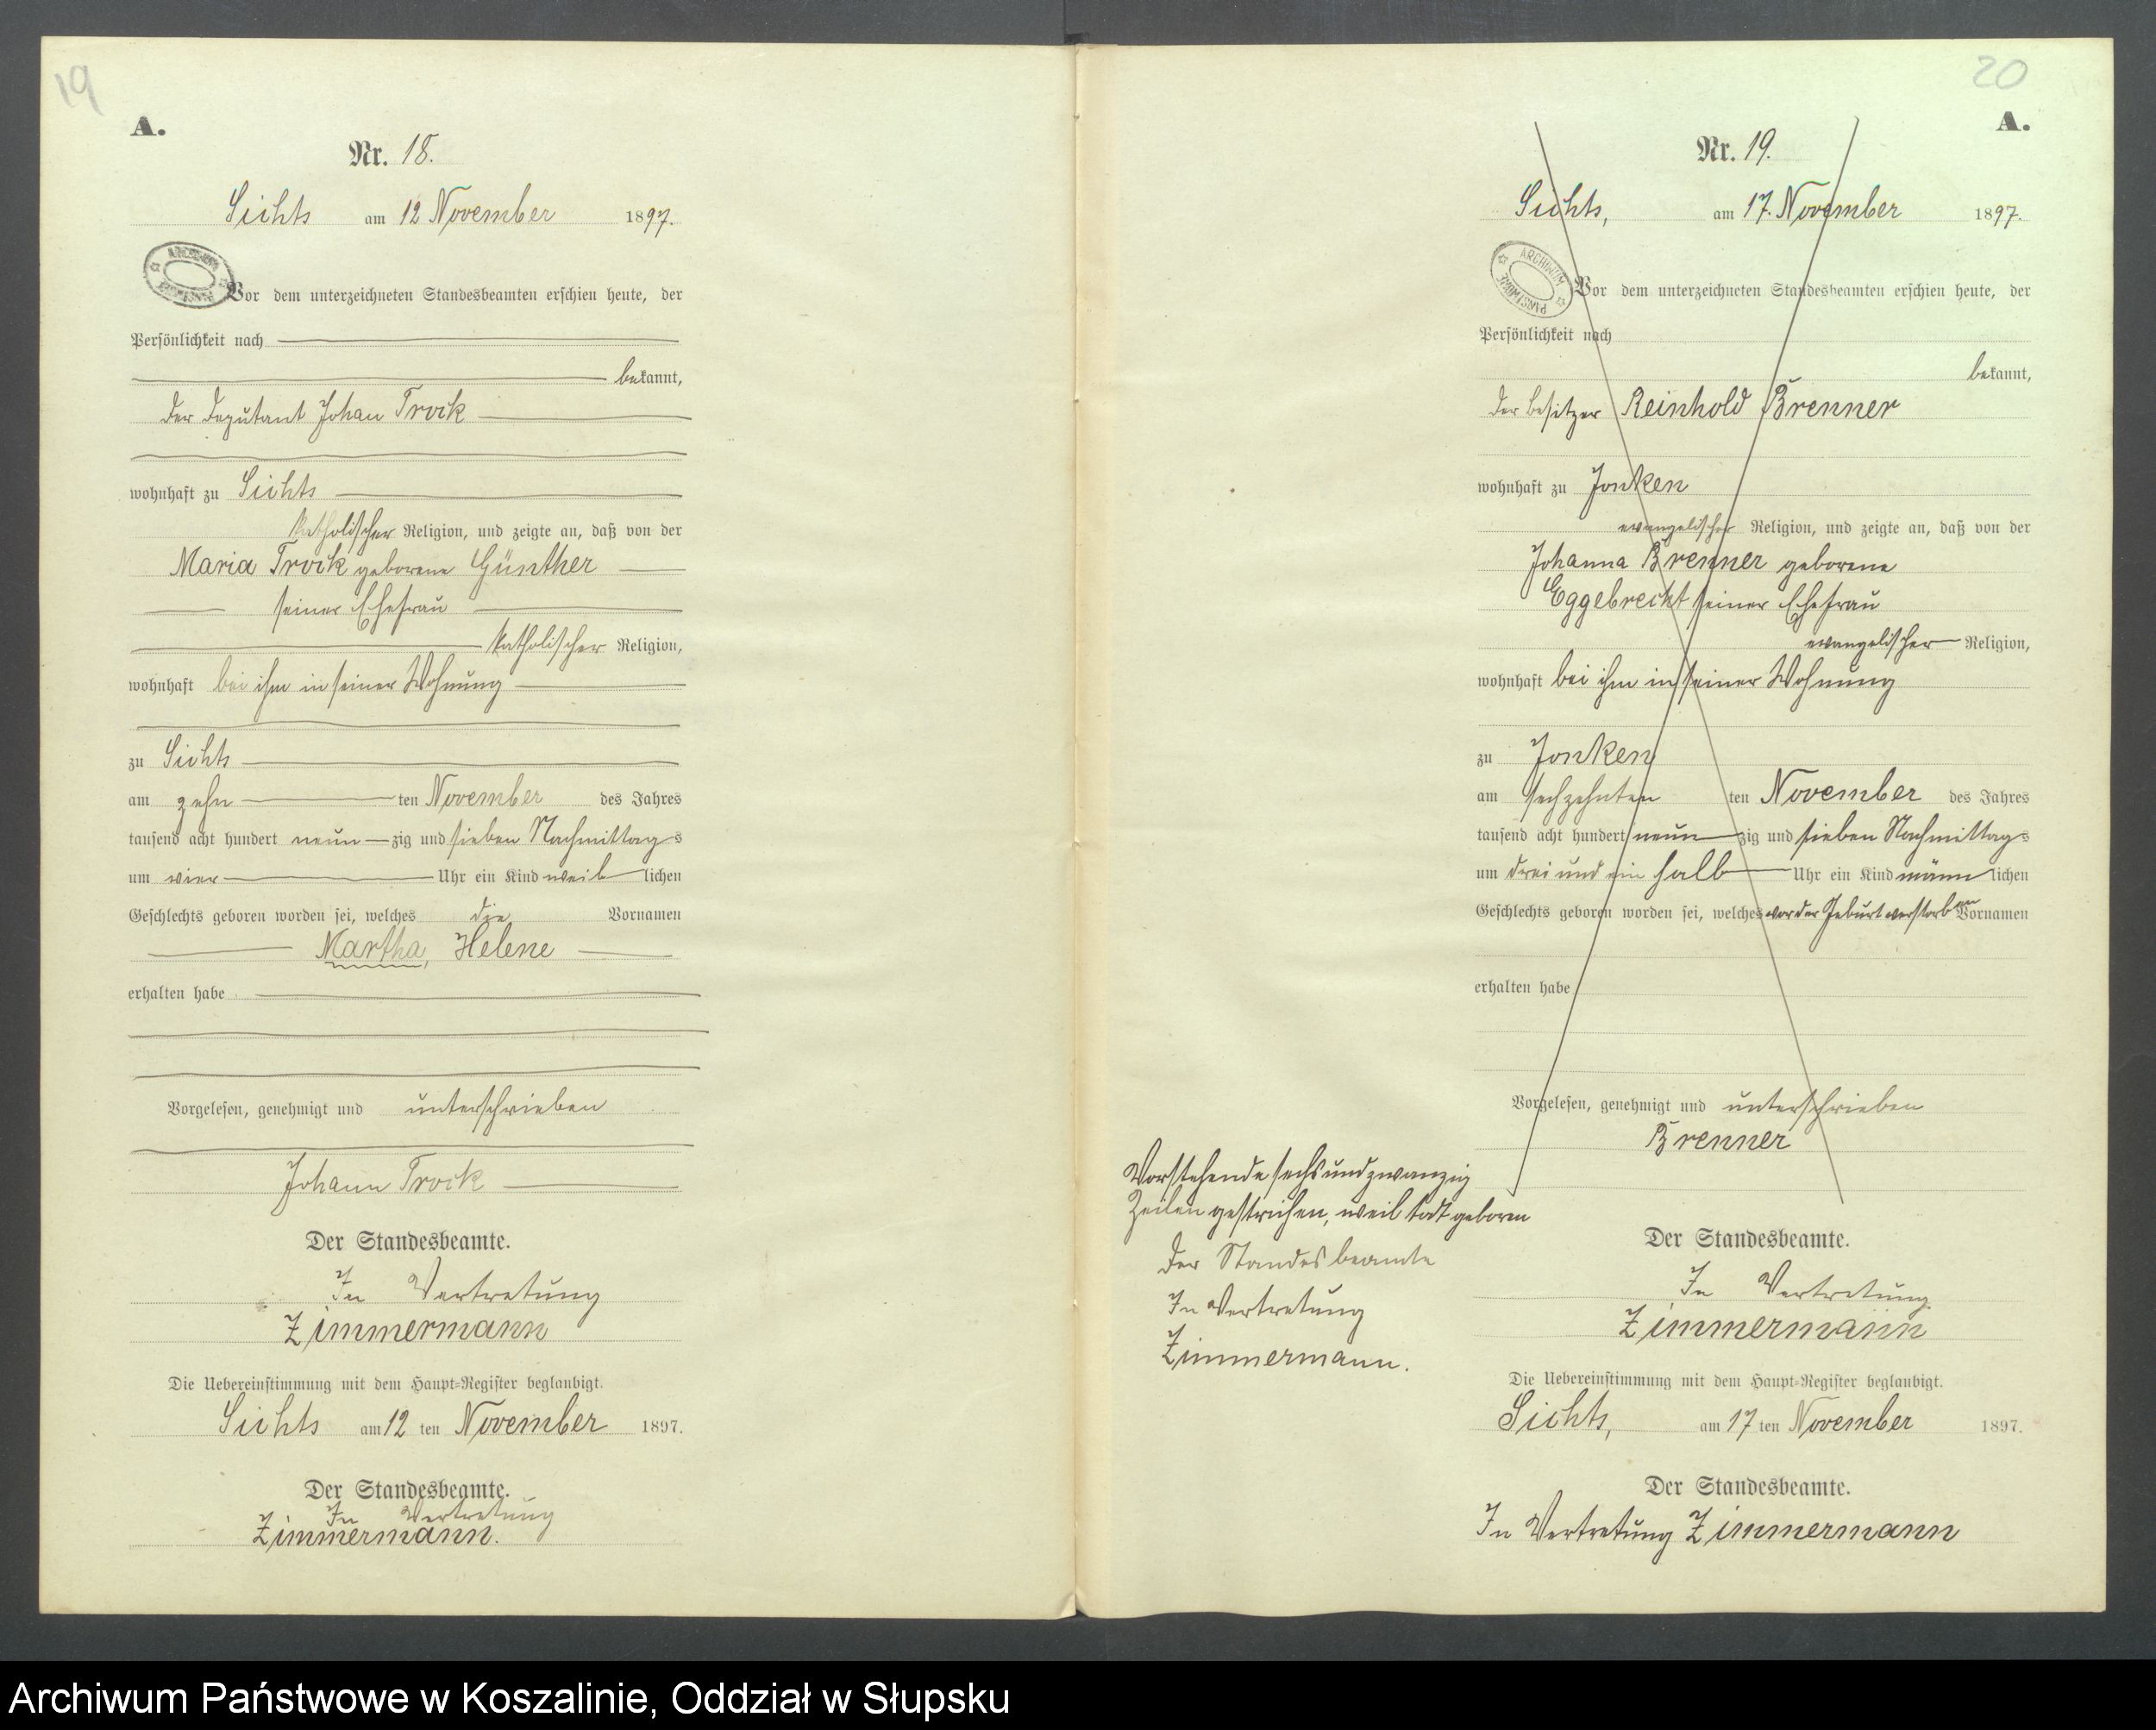 19
A.
Nr. 18.
Sichts am 12 November 1897.
Vor dem unterzeichneten Standesbeamten erschien heute, der
Persönlichkeit nach
bekannt,
der Deputant Johan Trock
wohnhaft zu Sichts
katholischer Religion, und zeigte an, daß von der
Maria Trock geborene Günther
seiner Ehefrau
katholischer Religion,
wohnhaft bei ihm in seiner Wohnung
zu Sichts
am zehn ten November des Jahres
tausend acht hundert neun zig und sieben Nachmittags
um vier Uhr ein Kind weiblichen
Geschlechts geboren worden sei, welches die Vornamen
Martha, Helene
erhalten habe
Vorgelesen, genehmigt und unterschrieben
Johann Trock
Der Standesbeamte.
In Vertretung
Zimmermann
Die Uebereinstimmung mit dem Haupt-Register beglaubigt.
Sichts am 12 ten November 1897.
Der Standesbeamte.
In Vertretung
Zimmermann.
20
A.
Nr. 19.
Sichts, am 17. November 1897.
ARCHIWUM PAŃSTWOWE
Vor dem unterzeichneten Standesbeamten erschien heute, der
Persönlichkeit nach
bekannt,
der Besitzer Reinhold Brenner
wohnhaft zu Jonken
evangelischer Religion, und zeigte an, daß von der
Johanna Brenner geborene
Eggebrecht seiner Ehefrau
evangelischer Religion,
wohnhaft bei ihm in seiner Wohnung
zu Jonken
am sechzehnten ten November des Jahres
tausend acht hundert neun zig und sieben Nachmittags
um drei und ein halb Uhr ein Kind männlichen
Geschlechts geboren worden sei, welches vor der Geburt verstorben Vornamen
erhalten habe
Vorgelesen, genehmigt und unterschrieben
Brenner
Vorstehende sechsundzwanzig
Zeilen gestrichen, weil todt geboren
Der Standesbeamte
In Vertretung
Zimmermann.
Der Standesbeamte.
In Vertretung
Zimmermann
Die Uebereinstimmung mit dem Haupt-Register beglaubigt.
Sichts, am 17 ten November 1897.
Der Standesbeamte.
In Vertretung Zimmermann
Archiwum Państwowe w Koszalinie, Oddział w Słupsku